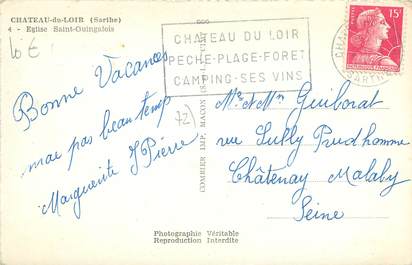 CHATEAU-du-LOIR (Sarthe)
4 - Eglise Saint-Guingalois
10 €
Bonne Vacances
mae pas beau temp
Marguerite J Pierre
72
CHATEAU DU LOIR
PECHE-PLAGE-FORET
CAMPING-SES VINS
SARTHE
15F
COMBIER IMP. MACON
Mr et Mm Guiborat
rue Sully Prudhomme
Châtenay Malaby
Seine
Photographie Véritable
Reproduction Interdite